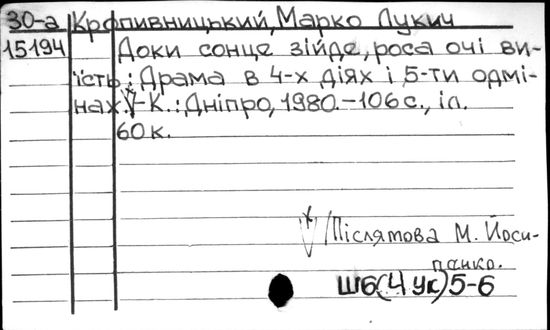 30-а Кропивницький, Марко Лукич
15194 Доки сонце зійде, роса очі ви-
їсть: Драма в 4-х діях і 5-ти одмі-
нах. V -К.: Дніпро, 1980.-106 с., іл.
60 к.
V /Післятова М. Йоси-
панко.
Ш6(4 Ук)5-6